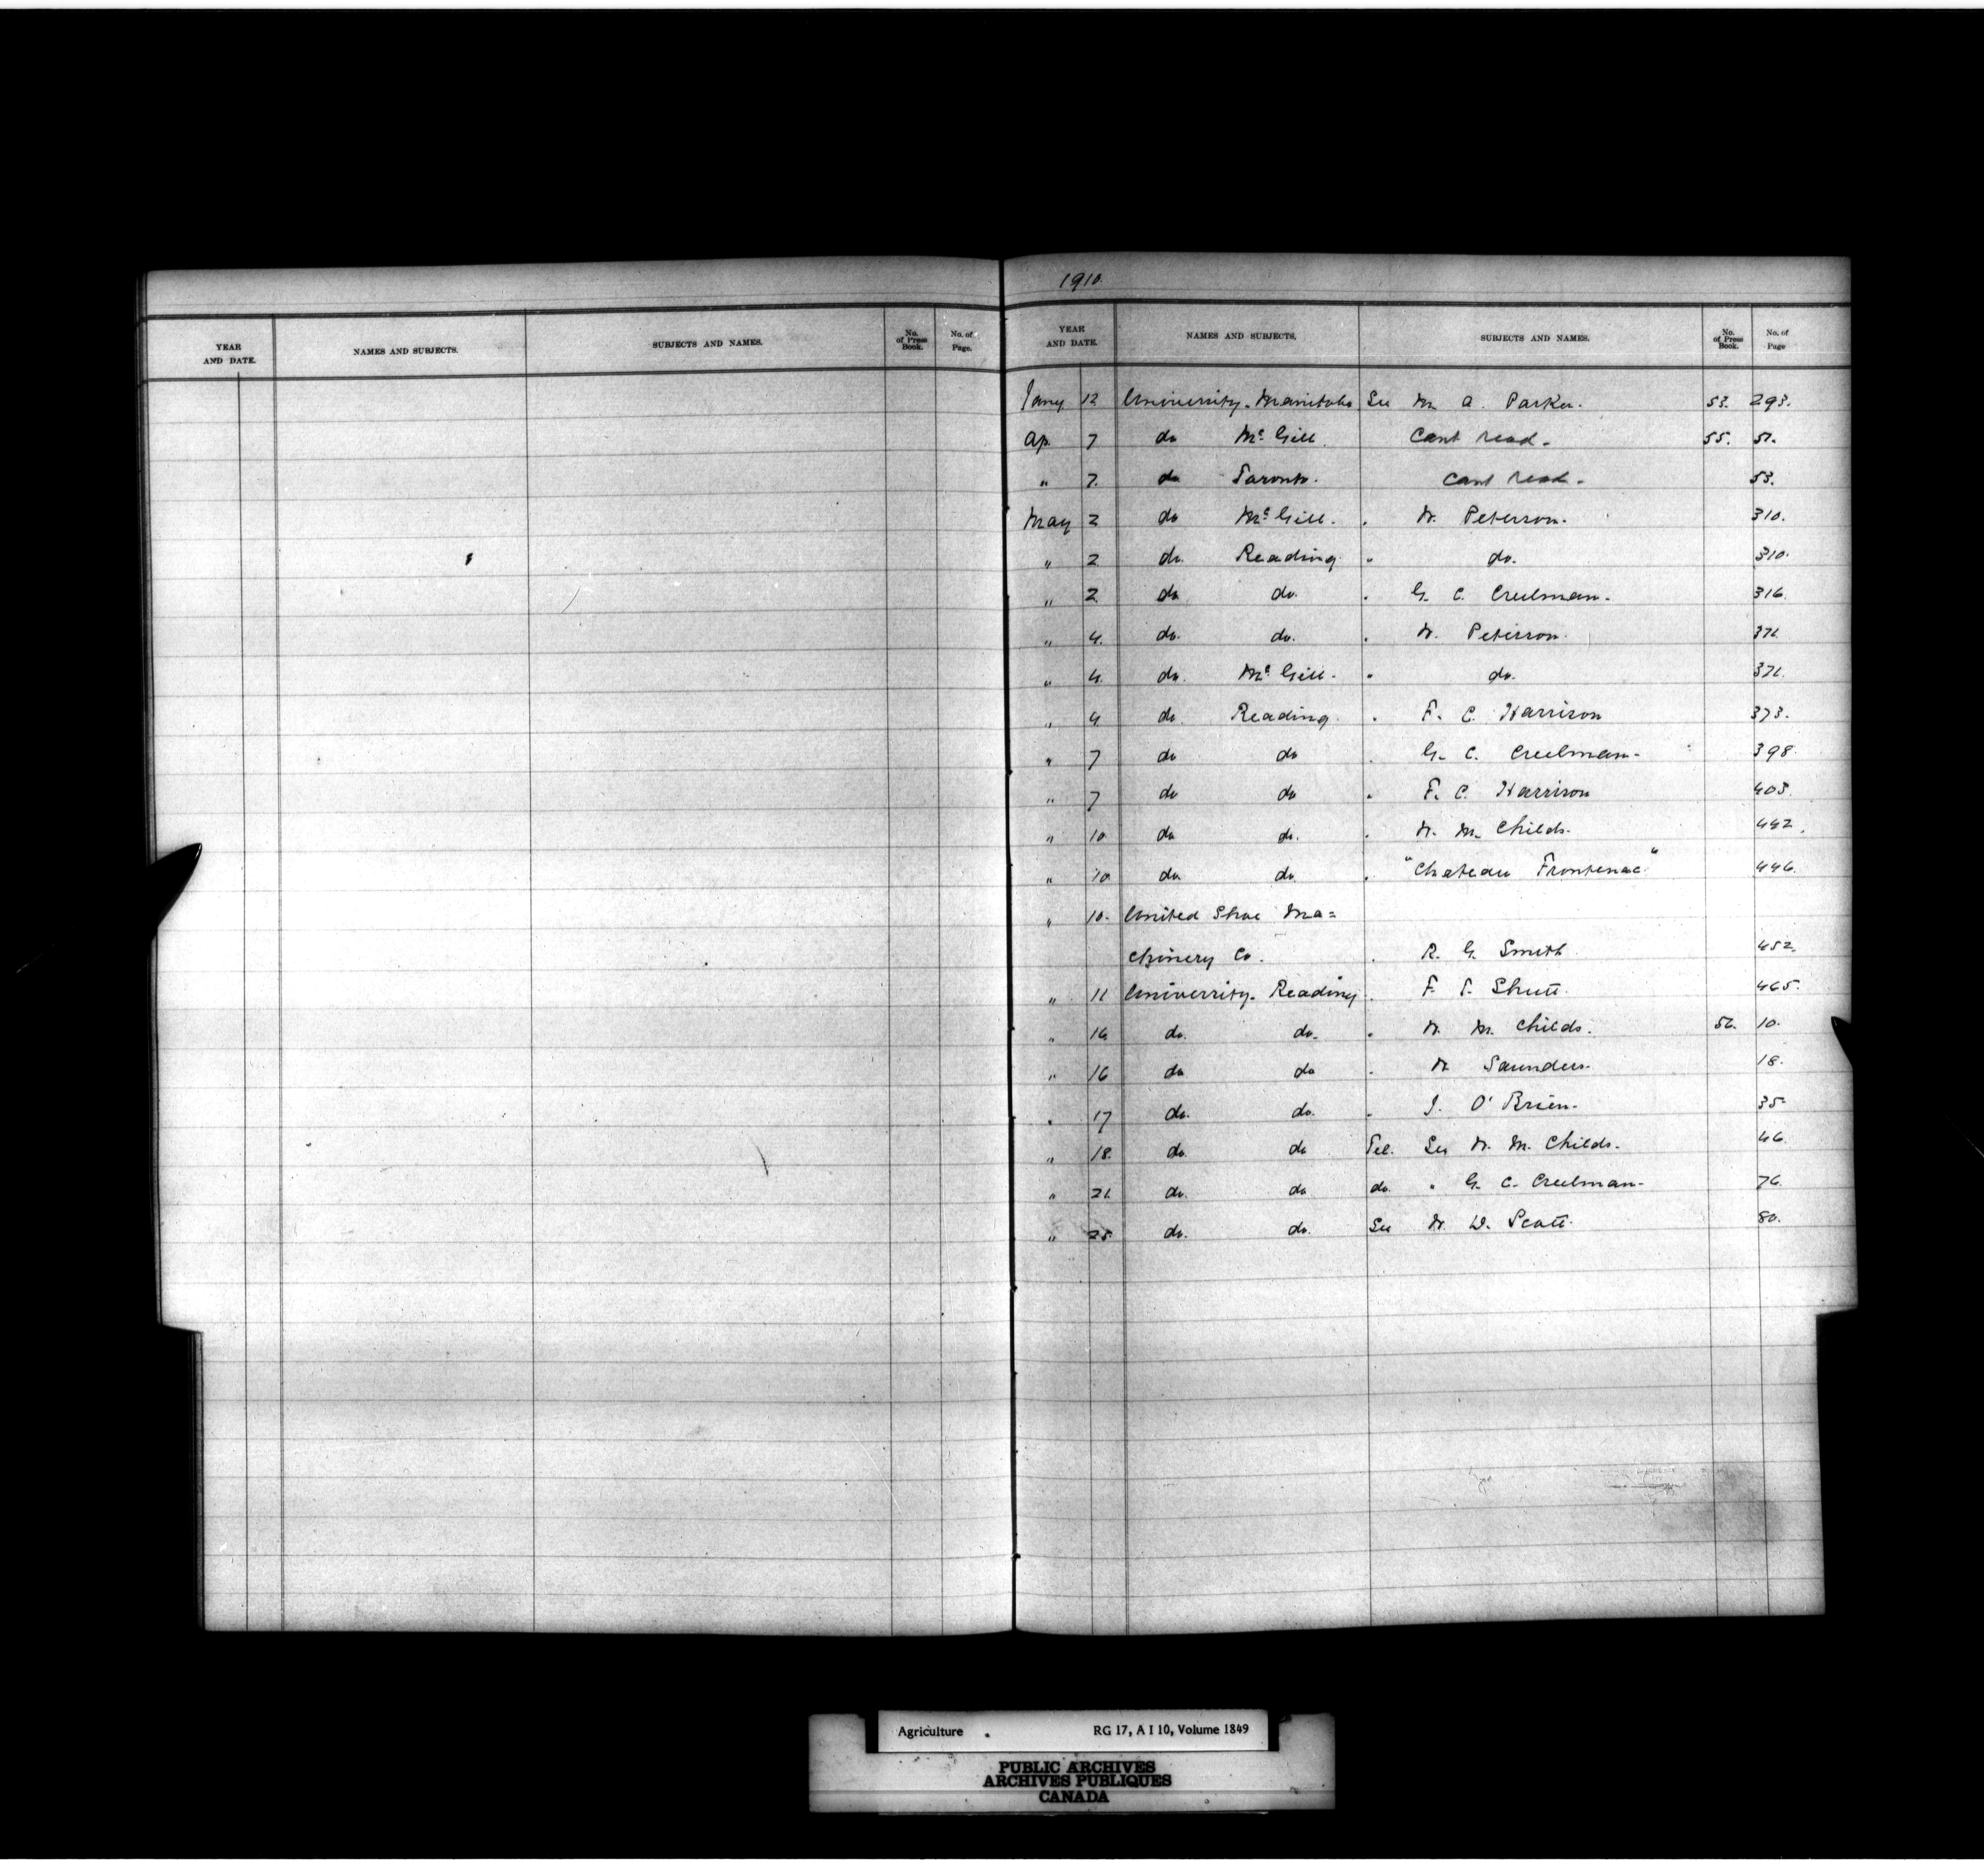 YEAR AND DATE. NAMES AND SUBJECTS. SUBJECTS AND NAMES. No. of Press Book. No. of Page.
1910.
YEAR AND DATE. NAMES AND SUBJECTS. SUBJECTS AND NAMES. No. of Press Book. No. of Page
Jany 12 University. Manitoba See M. A. Parker. 53. 293.
Ap. 7 do McGill. Cant read. 55. 51.
" 7. do Toronto. Cant read. 53.
May 2 do McGill. " W. Peterson. 310.
" 2 do. Reading. " do. 310.
" 2. do do. " G. C. Creelman. 316.
" 4. do. do. " W. Peterson. 371.
" 4. do. McGill. " do. 371.
" 4. do. Reading. " F. C. Harrison 373.
" 7 do do " G. C. Creelman. 398.
" 7 do do " F. C. Harrison 403.
" 10 do do. " W. M. Childs. 442.
" 10 do. do. " "Chateau Frontenac" 446.
" 10. United Shoe Ma=
chinery Co. " R. G. Smith 452.
" 11 University. Reading. " F. T. Shutt. 465.
" 16. do. do. " W. M. Childs. 56. 10.
" 16 do do " W. Saunders. 18.
" 17 do. do. " J. O'Brien. 35.
" 18. do. do Tel. See W. M. Childs. 46.
" 21. do. do do. " G. C. Creelman. 76.
" 25. do. do. See W. D. Scott. 80.
Agriculture RG 17, A I 10, Volume 1849
PUBLIC ARCHIVES
ARCHIVES PUBLIQUES
CANADA